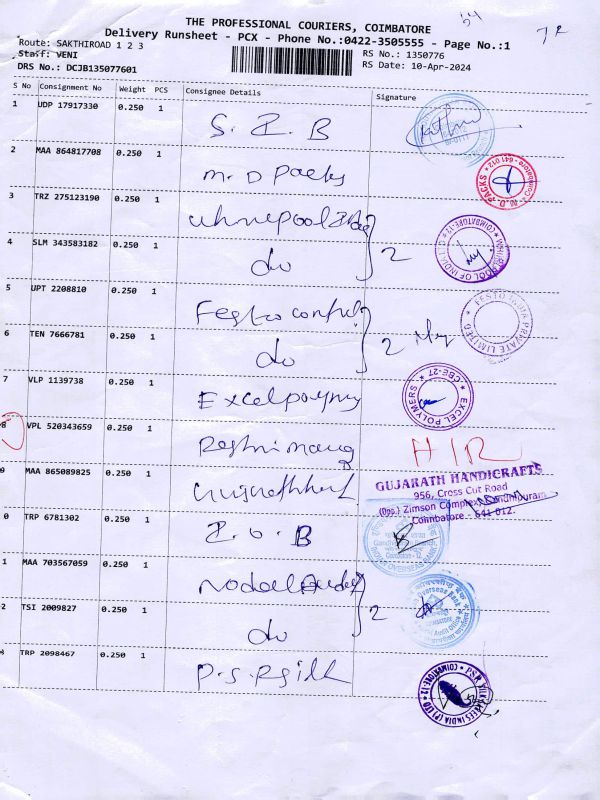 THE PROFESSIONAL COURIERS, COIMBATORE
Delivery Runsheet - PCX - Phone No.:0422-3505555 - Page No.:1
Route: SAKTHIROAD 1 2 3
RS No.: 1350776
Staff: VENI
RS Date: 10-Apr-2024
DRS No.: DCJB135077601
S No Consignment No Weight PCS Consignee Details Signature
1 UDP 17917330 0.250 1
S. I. B
2 MAA 864817708 0.250 1
M. D Packs
M.D. PACKS
Coimbatore - 641 012
3 TRZ 275123190 0.250 1
whirlpool
4 SLM 343583182 0.250 1
do
2
WHIRLPOOL OF INDIA
COIMBATORE-12
5 UPT 2208810 0.250 1
Festo control
6 TEN 7666781 0.250 1
do
2
FESTO INDIA PRIVATE LIMITED
7 VLP 1139738 0.250 1
Excel polymers
EXCEL POLYMERS
CBE-27
8 VPL 520343659 0.250 1
H/R
9 MAA 865089825 0.250 1
GUJARATH HANDICRAFTS
956, Cross Cut Road
(Opp.) Zimson Complex, Gandhipuram,
Coimbatore - 641 012.
0 TRP 6781302 0.250 1
I. O. B
1 MAA 703567059 0.250 1
Nodal Audit
2 TSI 2009827 0.250 1
do
2
3 TRP 2098467 0.250 1
P. S. R Silk
COIMBATORE-12